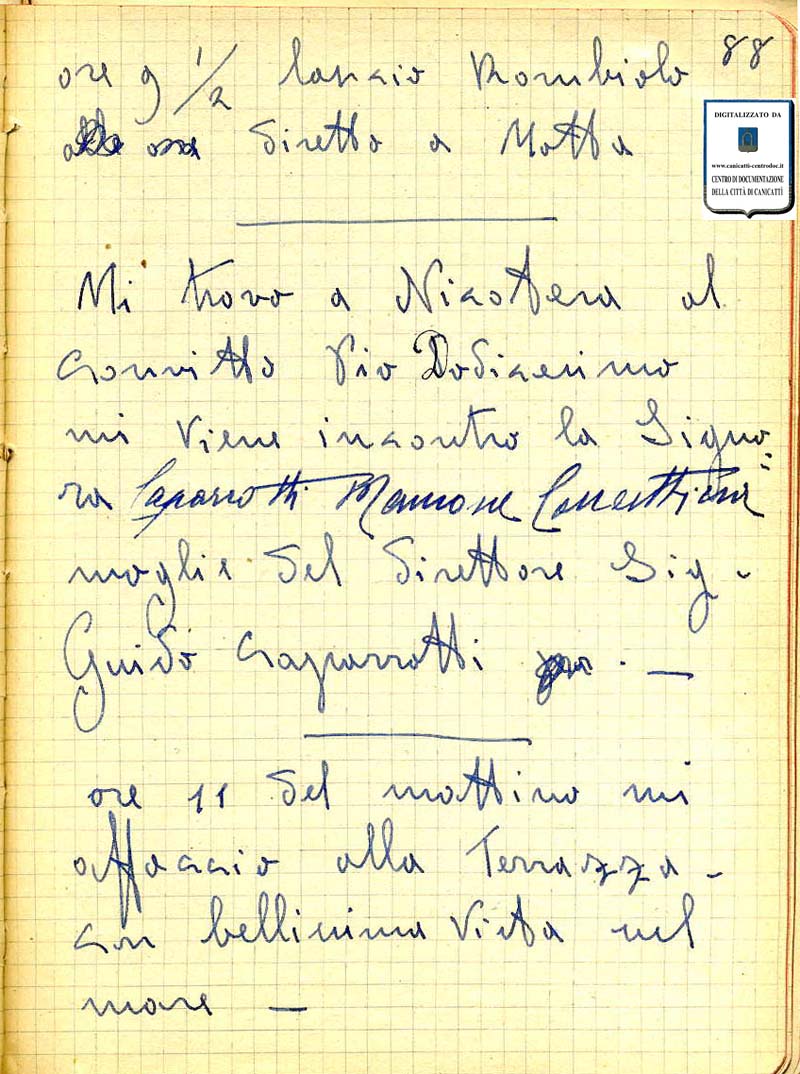 88
ore 9 1/2 lascio Rombiolo
diretto a Motta
DIGITALIZZATO DA
www.canicatti-centrodoc.it
CENTRO DI DOCUMENTAZIONE
DELLA CITTÀ DI CANICATTÌ
Mi trovo a Nicotera al
Convitto Pio Dodicesimo
mi viene incontro la Signo=
ra Caparrotti Mamone
moglie del direttore Sig.
Guido Caparrotti . —
ore 11 del mattino mi
affaccio alla Terrazza -
con bellissima vista nel
mare —